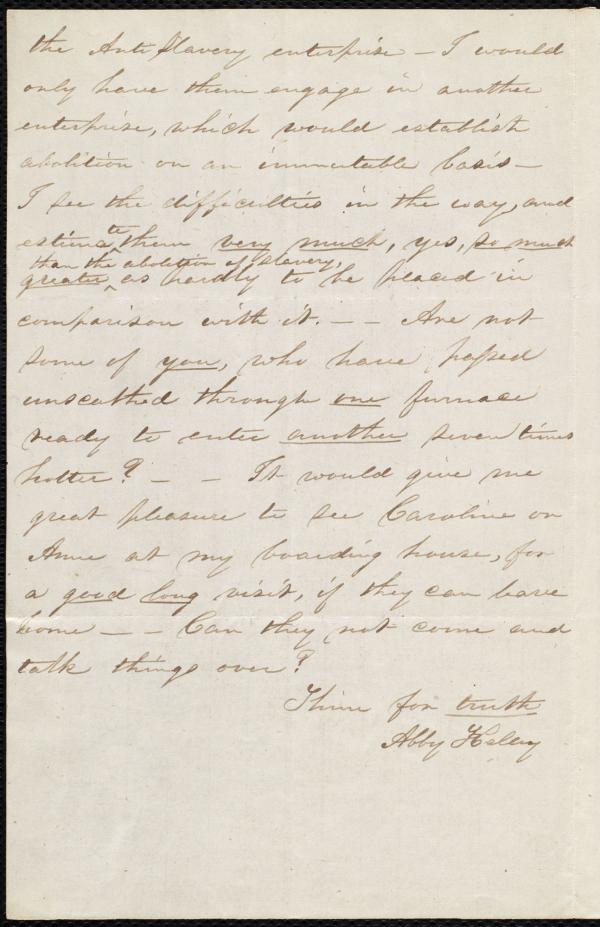 the Anti Slavery enterprise – I would
only have them engage in another
enterprise, which would establish
abolition on an immutable basis –
I see the difficulties in the way, and
estimate them very much, yes, so much
greater than the abolition of slavery, as hardly to be placed in
comparison with it. – – Are not
some of you, who have passed
unscathed through one furnace
ready to enter another seven times
hotter? – – It would give me
great pleasure to see Caroline or
Anne at my boarding house, for
a good long visit, if they can leave
home – – Can they not come and
talk things over?
Thine for truth
Abby Kelley